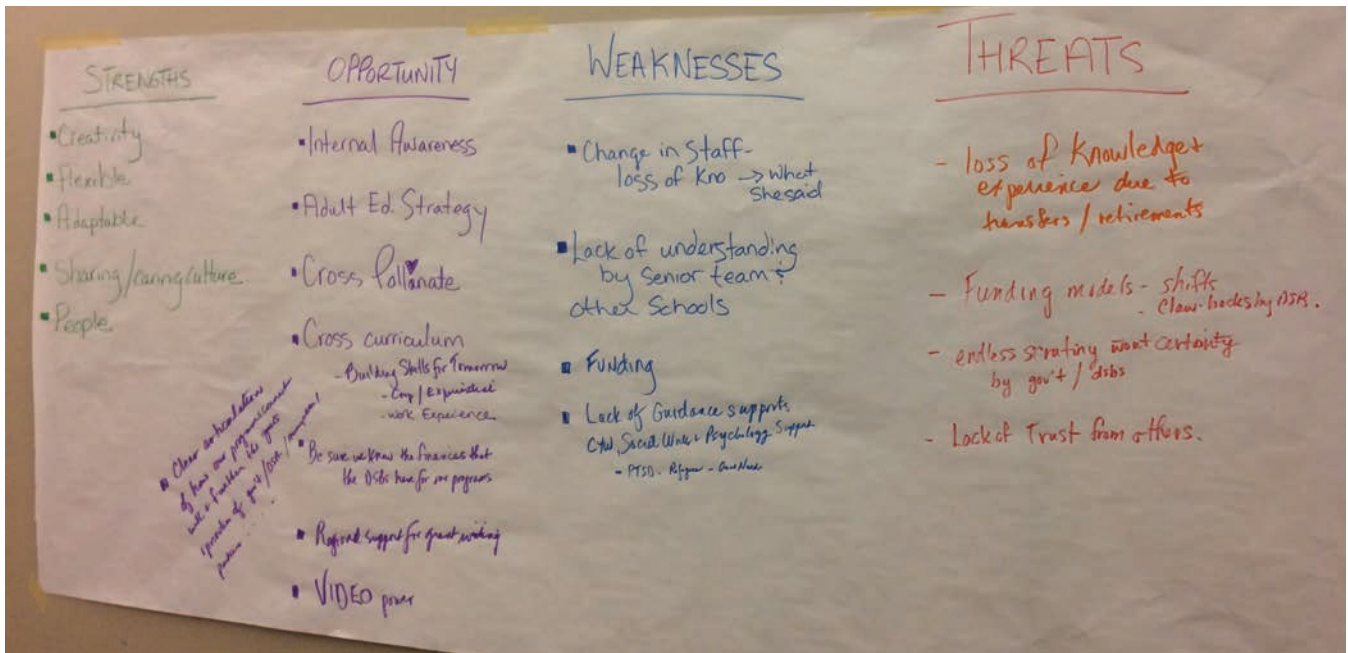 STRENGTHS
Creativity
Flexible
Adaptable
Sharing/caring culture
People
OPPORTUNITY
Internal Awareness
Adult Ed. Strategy
Cross Pollinate
Cross curriculum
- Building Skills for Tomorrow
- Coop / Experiential
- Work Experience
Be sure we know the finances that
the DSBs have for our programs
Regional support for grant writing
VIDEO power
Clear articulation
of how our programs connect
with & further the goals
WEAKNESSES
Change in Staff-
loss of Kno → what
she said
Lack of understanding
by Senior team &
other Schools
FUNDING
Lack of Guidance supports
CYW, Social Work + Psychology Support
- PTSD - Refugee
THREATS
- loss of knowledge +
experience due to
transfers / retirements
- Funding models - shifts
- Claw-backs by DSB.
- endless want certainty
by gov't / dsbs
- Lack of Trust from others.